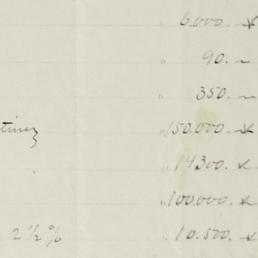 " 6,000. x
" 90. ~
" 350. ~
tinez " 150,000. x
" 14300. x
" 100,000. x
2 1/2 % " 10.500. x